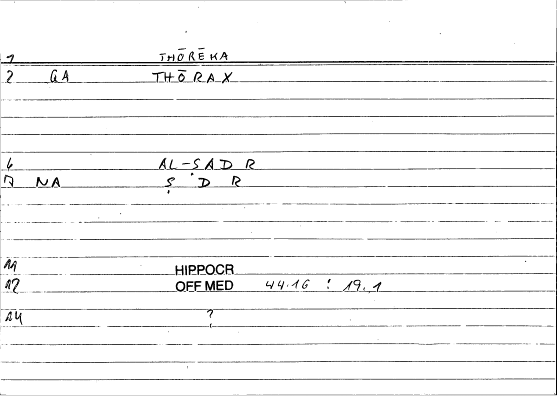 1 THŌRĒKA
2 GA THŌRAX
6 AL-ṢADR
7 NA Ṣ D R
11 HIPPOCR
12 OFF MED 44.16 : 19.1
14 ?